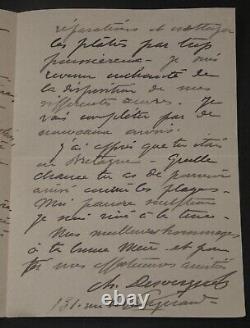 réparations et nettoyer
les plâtres par trop
poussiéreux - je suis
revenu enchanté de
la disposition de mes
différents envois. Je
vais compléter par de
nouveaux envois.
J'ai appris que tu étais
en Bretagne - Quelle
chance tu as de pouvoir
ainsi courir les plages.
Moi pauvre sculpteur
je suis rivé à la terre.
Mes meilleurs hommages
à ta bonne Mère et pour
toi mes affectueuses amitiés
Ch.
131 rue de